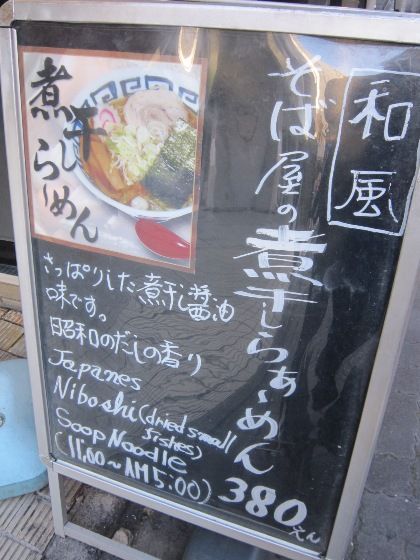 和風
そば屋の煮干しらぁ〜めん
380えん
煮干し
らーめん
さっぱりした煮干し醤油
味です。
昭和のだしの香り
Japanes
Niboshi (dried small
fishes)
Soop Noodle
(11:00〜AM5:00)